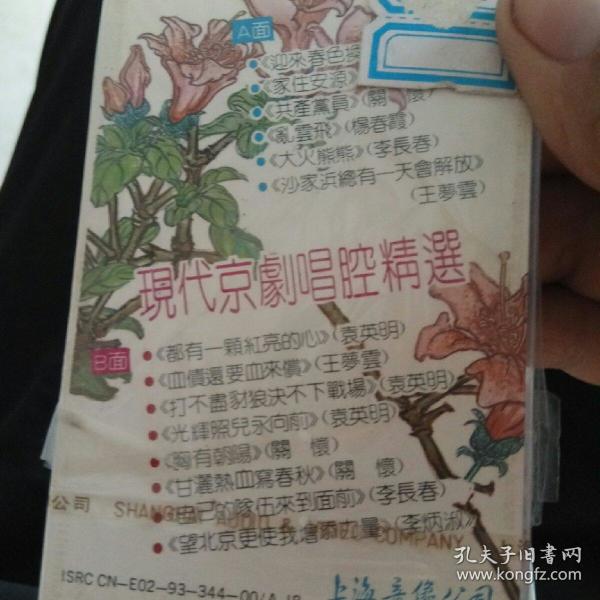 A面
•《迎來春色
•《家住安源》
•《共產黨員》(關 懷)
•《亂雲飛》(楊春霞)
•《大火熊熊》(李長春)
•《沙家浜總有一天會解放》
(王夢雲)
現代京劇唱腔精選
B面
•《都有一顆紅亮的心》(袁英明)
•《血債還要血來償》(王夢雲)
•《打不盡豺狼決不下戰場》(袁英明)
•《光輝照兒永向前》(袁英明)
•《胸有朝陽》(關 懷)
•《甘灑熱血寫春秋》(關 懷)
•《自己的隊伍來到面前》(李長春)
•《望北京更使我增添力量》(李炳淑)
公司 SHANGHAI AUDIO COMPANY 上海
ISRC CN-E02-93-344-00/A.J8
上海音像公司
孔夫子旧书网
www.kongfz.com